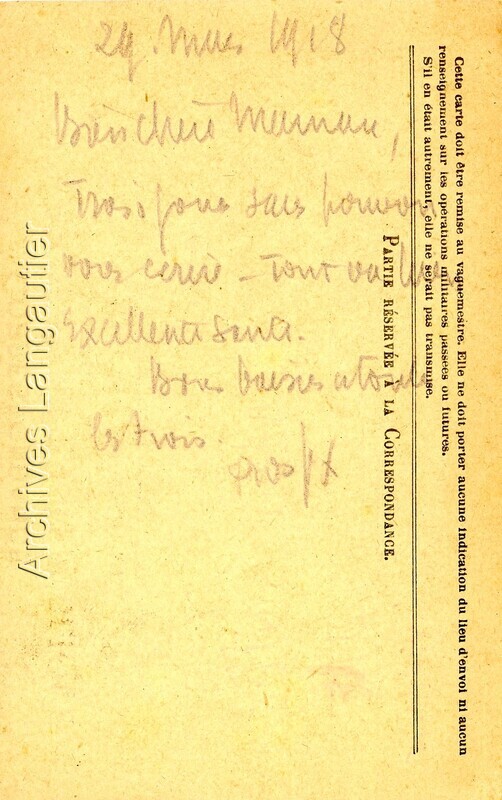 29 Mars 1918
Bien chère Maman,
Trois jours sans pouvoir
vous écrire - Tout va bien
Excellente santé.
Bons baisers à toutes
les trois.
Cette carte doit être remise au vaguemestre. Elle ne doit porter aucune indication du lieu d'envoi ni aucun
renseignement sur les opérations militaires passées ou futures.
S'il en était autrement, elle ne serait pas transmise.
PARTIE RÉSERVÉE À LA CORRESPONDANCE.
Archives Langautier